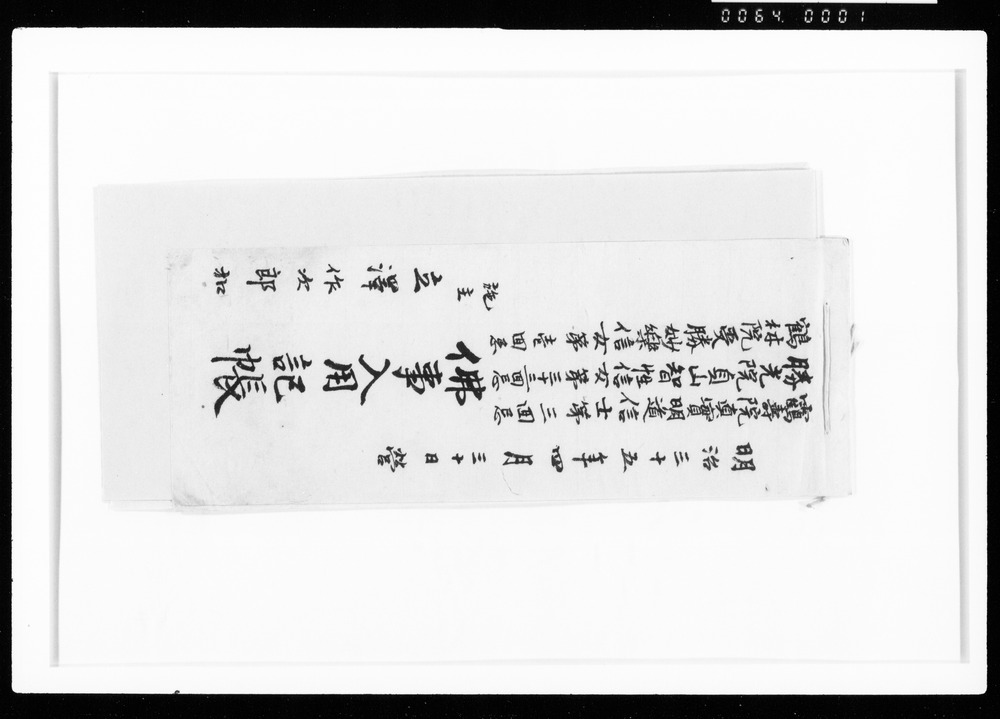 0064. 0001
明治三十五年四月三十日營
靏壽院真實明道信士第三回忌
勝光院貞山智性信女第三十三回忌
鶴林院夏勝妙樂信女第壱回忌
佛事入用記帳
施主 立澤作次郎 扣